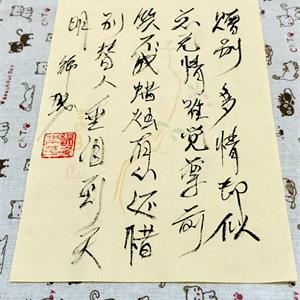 赠别多情却似
总无情唯觉尊前
笑不成蜡烛有心还惜
别替人垂泪到天
明
Beautiful Day